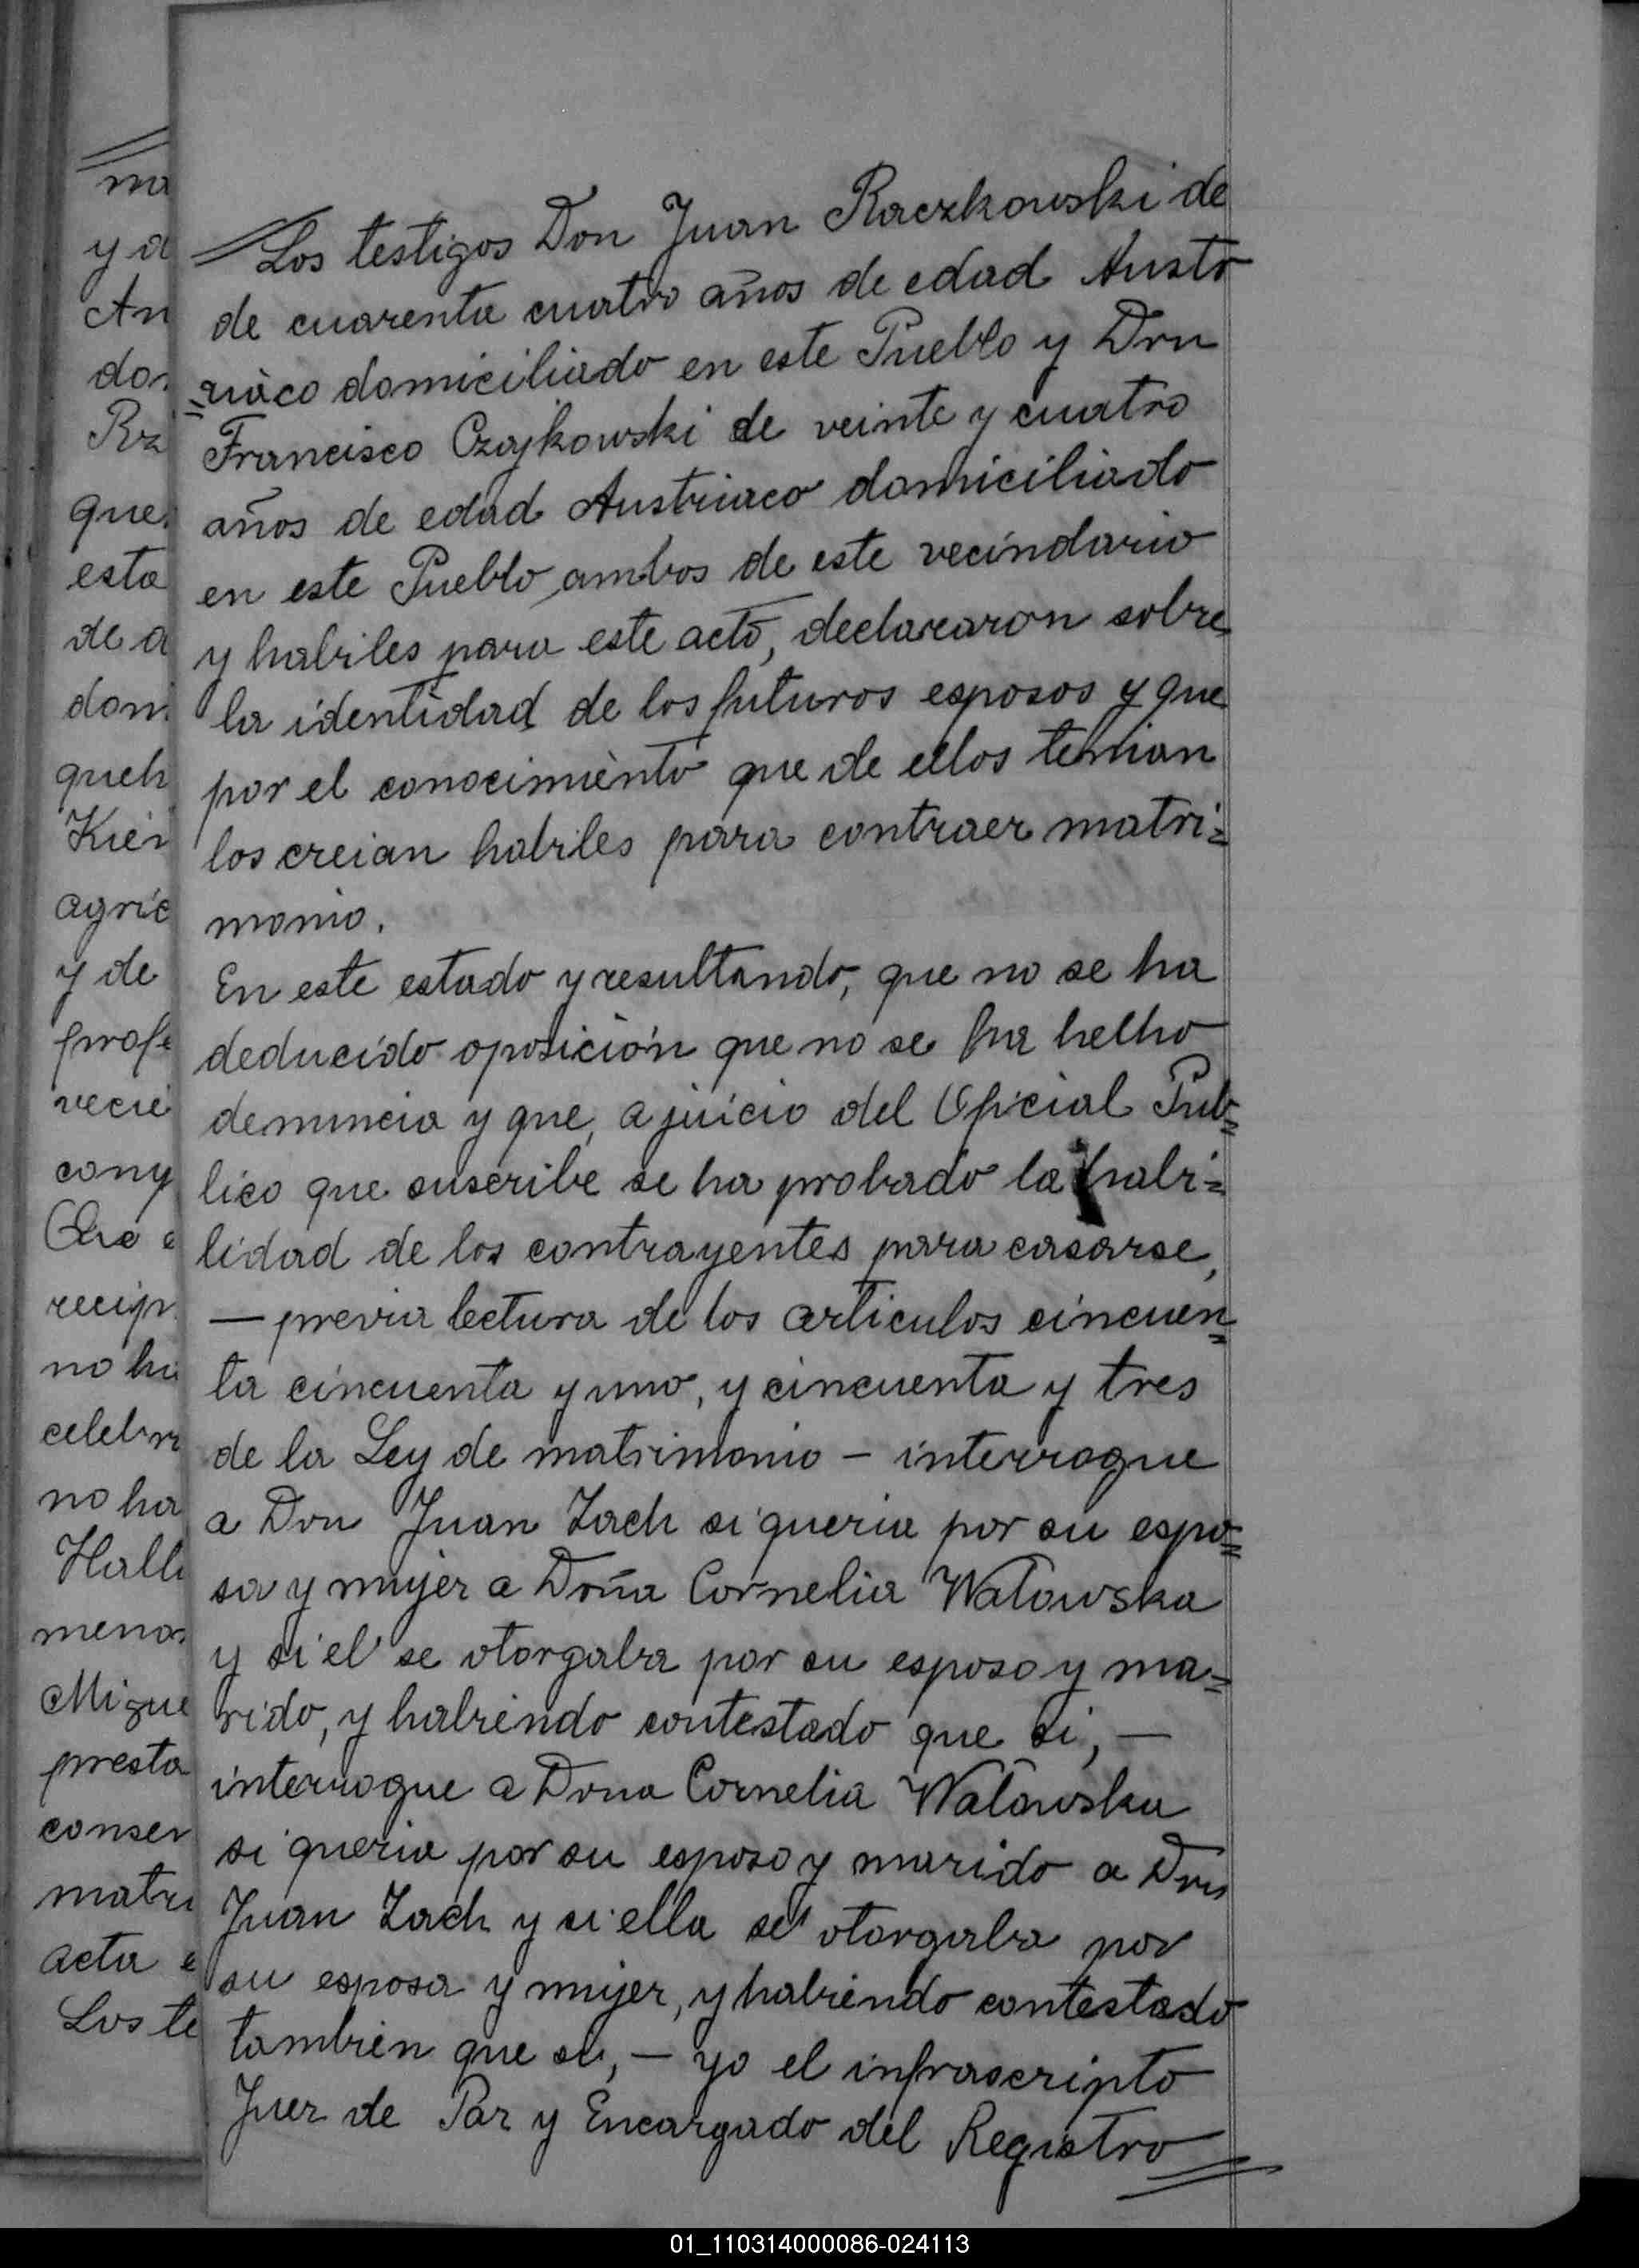 ma
y a
An
don
Rz
que
esta
de a
dom
queh
Kier
agric
y de
profe
vecie
cony
Que e
recipr
no ha
celebra
no ha
Halla
menos
Migue
presta
consen
matri
acta e
Los te
Los testigos Don Juan Raczkowski de
de cuarenta cuatro años de edad Austr
=riaco domiciliado en este Pueblo y Don
Francisco Czajkowski de veinte y cuatro
años de edad Austriaco domiciliado
en este Pueblo, ambos de este vecindario
y habiles para este acto, declararon sobre
la identidad de los futuros esposos y que
por el conocimiento que de ellos tenian
los creian habiles para contraer matri=
monio.
En este estado y resultando, que no se ha
deducido oposición que no se ha helho
denuncia y que, a juicio del Oficial Pub=
lico que suscribe se ha probado la habi=
lidad de los contrayentes para casarse,
— previa lectura de los articulos cincuen=
ta cincuenta y uno, y cincuenta y tres
de la Ley de matrimonio – interrogue
a Don Juan Zach si queria por su espo=
sa y mujer a Doña Cornelia Watowska
y si el se otorgaba por su esposo y ma=
rido, y habiendo contestado que si, —
interrogue a Dona Cornelia Watowska
si queria por su esposo y marido a Don
Juan Zach y si ella se otorgaba por
su esposa y mujer, y habiendo contestado
tambien que si, – yo el infrascripto
Juez de Paz y Encargado del Registro
01_110314000086-024113